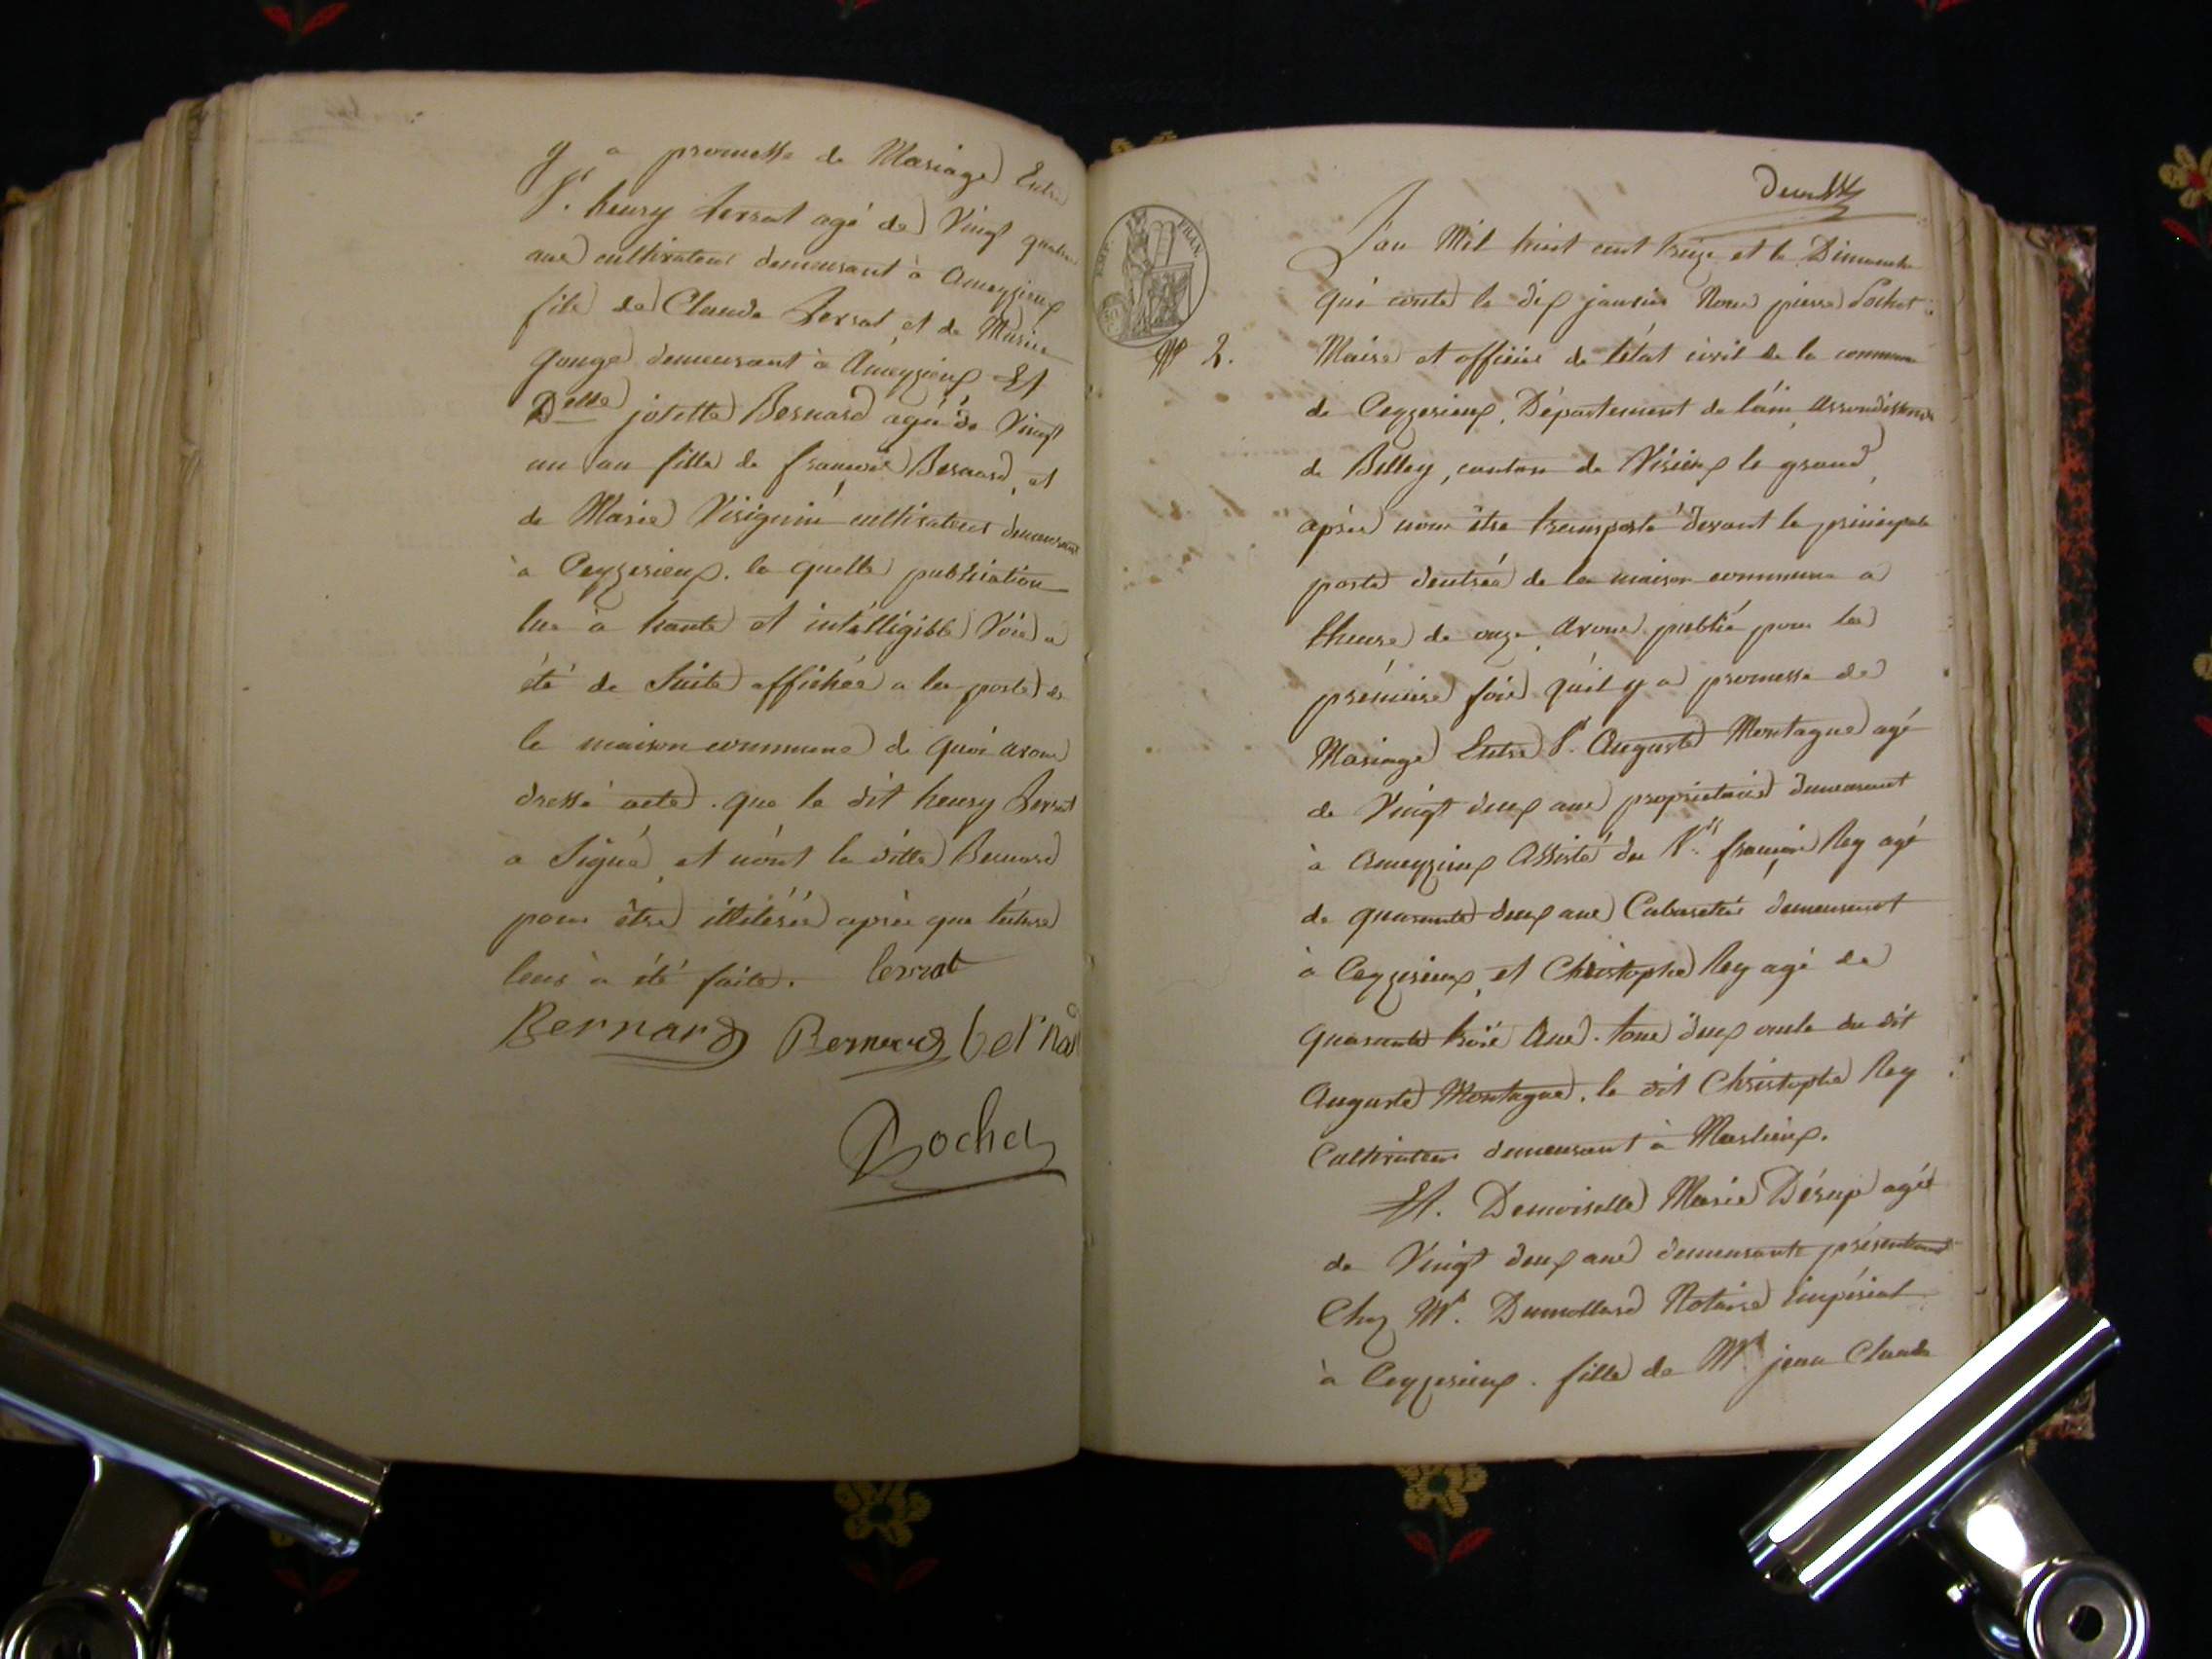 y a promesse de Mariage Entre
Sr. henry Serrat agé de Vingt quatre
ans cultivateur demeurant à Ameyzieux
fils de Claude Serrat et de Marie
Gouge demeurant à Ameyzieux Et
Delle josette Bernard agée de Vingt
un an fille de françois Bernard, et
de Marie cultivateur demeurant
à Ceyzerieux. la quelle publication
lue à haute et intélligible Voix a
été de Suite affichée a la porte de
la maison commune de quoi avons
dressé acte. que le dit henry Serrat
a Signé, et nont la ditte Bernard
pour être illitérée après que lecture
leur à été faite. Cerrat
Bernard Bernard bernard
Pochet
EMP. FRAN.
N° 2.
L'an Mil huit cent treize et le Dimanche
qui conte le dix janvier Nous pierre Pochet
Maire et officier de l'état civil de la commune
de Ceyzerieux, Département de l'ain, Arrondissement
de Belley, canton de Virieux le grand,
après nous être transporté devant la principale
porte d'entrée de la maison commune a
l'heure de onze, Avons publié pour la
prémiere fois qu'il y a promesse de
Mariage Entre Sr. Auguste Montagne agé
de Vingt deux ans proprietaire demeurant
à Ameyzieux Assisté du françois Rey agé
de quarante deux ans Cabaretier demeurant
à Ceyzerieux, et Christophe Rey agé de
quarante trois Ans. tous deux oncle du dit
Auguste Montagne. le dit Christophe Rey
Cultivateur demeurant à Marlieux.
Et. Demoiselle Marie agée
de Vingt deux ans demeurante
Chez Mr. Dumollard Notaire impérial
à Ceyzerieux. fille de Mr jean Claude